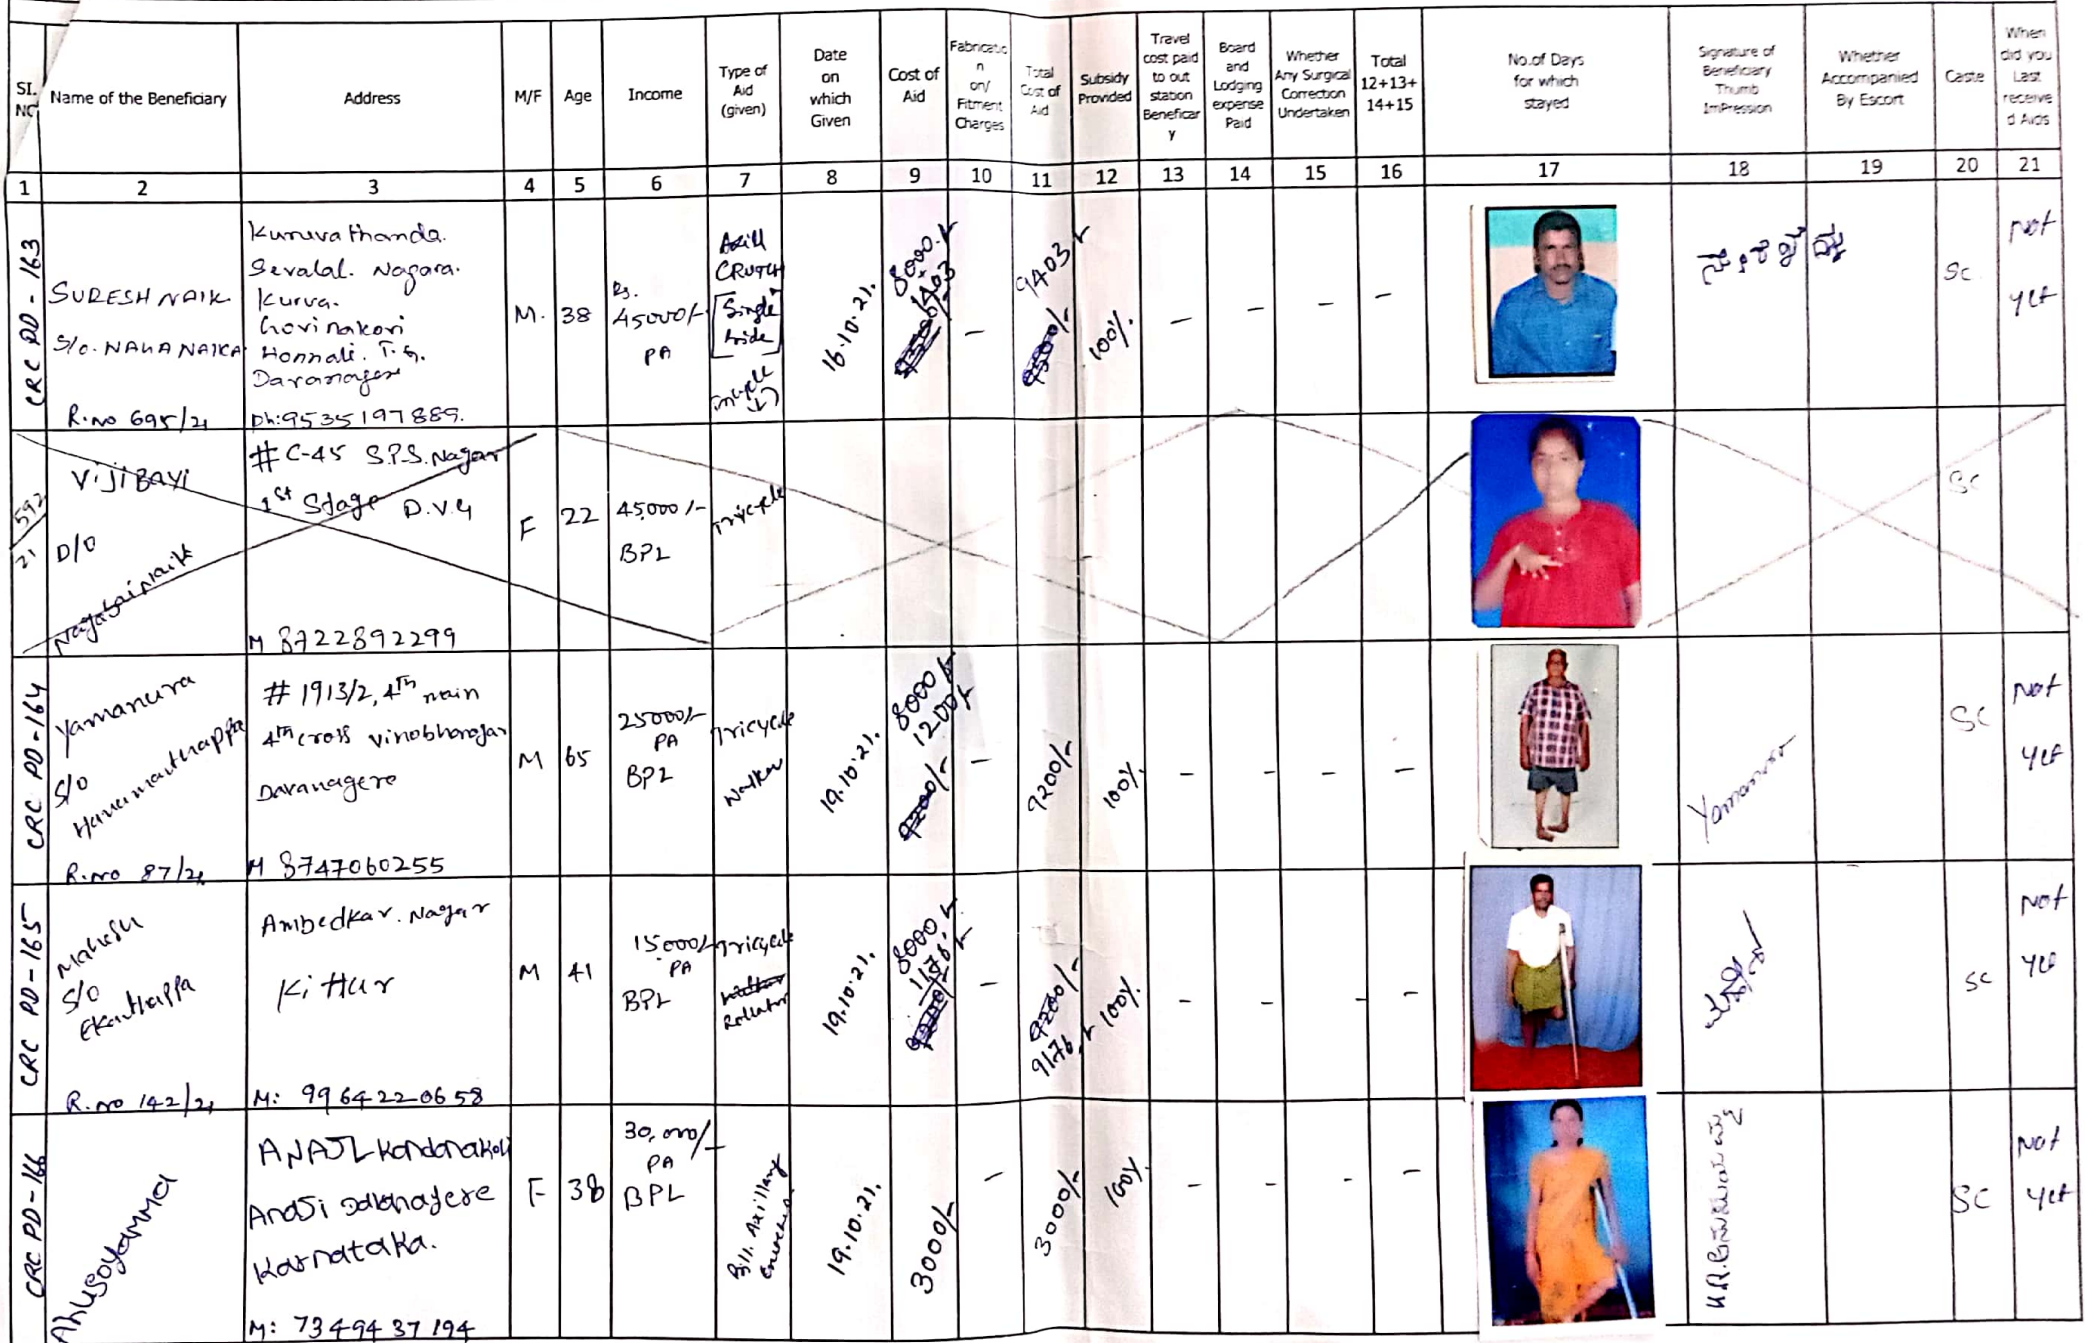 SI. NO
Name of the Beneficiary
Address
M/F
Age
Income
Type of
Aid
(given)
Date
on
which
Given
Cost of
Aid
Fabricatio
n
on/
Fitment
Charges
Total
Cost of
Aid
Subsidy
Provided
Travel
cost paid
to out
station
Beneficar
y
Board
and
Lodging
expense
Paid
Whether
Any Surgical
Correction
Undertaken
Total
12+13+
14+15
No.of Days
for which
stayed
Signature of
Beneficiary
Thumb
ImPression
Whether
Accompanied
By Escort
Caste
When
did you
Last
receive
d Aids
1 2 3 4 5 6 7 8 9 10 11 12 13 14 15 16 17 18 19 20 21
CRC PD - 163
SURESH NAIK
S/o. NAHA NAIKA
R.no 695/21
Kuruva thanda.
Sevalal. Nagara.
Kurva.
Govinakovi
Honnali. T.q.
Davanagere
Ph:9535197889.
M.
38
Rs.
45000/-
PA
Axill
CRUTCH
[Single
side]
16.10.21.
8000/-
1403
-
9403/-
100%.
-
-
-
-
SC.
Not
yet
592/21
VijiBayi
D/O
# C-45 S.P.S. Nagar
1st Stage D.V.G
M 8722892299
F
22
45,000/-
BPL
Tricycle
SC
CRC PD - 164
Yamanura
S/o
Hanumanthappa
R.no 87/21
# 1913/2, 4th main
4th cross vinobhanagar
Davanagere
M 8747060255
M
65
25000/-
PA
BPL
Tricycle
Walker
19.10.21.
8000/-
1200/-
9200/-
-
9200/-
100%
-
-
-
-
Yamanura
SC
Not
yet
CRC PD - 165
Mahesh
S/o
Ekanthappa
R.no 142/21
Ambedkar. Nagar
Kittur
M: 9964220658
M
41
15000/-
PA
BPL
Tricycle
Walker
Rollator
19.10.21.
8000/-
1176/-
9200/-
-
9200/-
9176/-
100%.
-
-
-
-
SC
Not
yet
CRC PD - 166
Anusoyamma
ANAJI kandanakovi
Anaji Davanagere
Karnataka.
M: 7349437194
F
38
30,000/-
PA
BPL
Bil. Axillary
Crutches
19.10.21.
3000/-
-
3000/-
100%.
-
-
-
-
SC
Not
yet